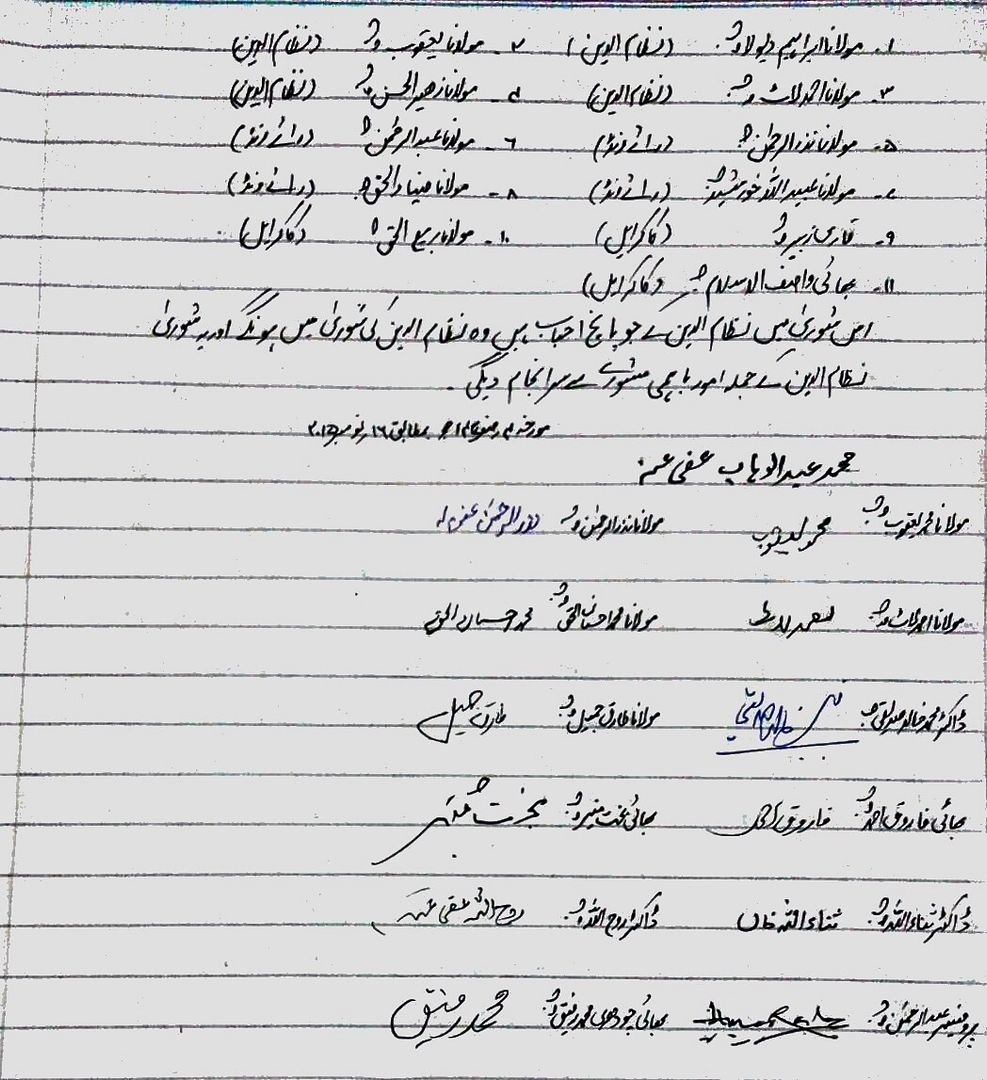 ۱۔ مولانا ابراہیم دیولا صاحب (نظام الدین) ۲۔ مولانا یعقوب صاحب (نظام الدین)
۳۔ مولانا احمد لاٹ صاحب (نظام الدین) ۴۔ مولانا زھیر الحسن صاحب (نظام الدین)
۵۔ مولانا نذر الرحمٰن صاحب (رائے ونڈ) ۶۔ مولانا عبدالرحمٰن صاحب (رائے ونڈ)
۷۔ مولانا عبید اللہ خورشید صاحب (رائے ونڈ) ۸۔ مولانا ضیاء الحق صاحب (رائے ونڈ)
۹۔ قاری زبیر صاحب (کاکرایل) ۱۰۔ مولانا ربیع الحق صاحب (کاکرایل)
۱۱۔ بھائی واصف الاسلام صاحب (کاکرایل)
اس شوریٰ میں نظام الدین کے جو پانچ احباب ہیں وہ نظام الدین کی شوریٰ میں ہونگے اور یہ شوریٰ
نظام الدین کے جملہ امور باہمی مشورے سے سرانجام دیگی۔
مورخہ بمطابق ۱۶ نومبر ۲۰۱۵
محمد عبدالوہاب عفی عنہ
مولانا محمد یعقوب صاحب محمد یعقوب مولانا نذر الرحمٰن صاحب نذر الرحمٰن
مولانا احمد لاٹ صاحب احمد لاٹ مولانا محمد احسان الحق صاحب محمد احسان الحق
ڈاکٹر محمد خالد صدیقی صاحب خالد صدیقی مولانا طارق جمیل صاحب طارق جمیل
بھائی فاروق احمد صاحب فاروق احمد بھائی بخت منیر صاحب بخت منیر
ڈاکٹر ثناء اللہ صاحب ثناء اللہ خان ڈاکٹر روح اللہ صاحب روح اللہ عفی عنہ
پروفیسر عبدالرحمٰن صاحب بھائی چودھری محمد رفیق صاحب محمد رفیق